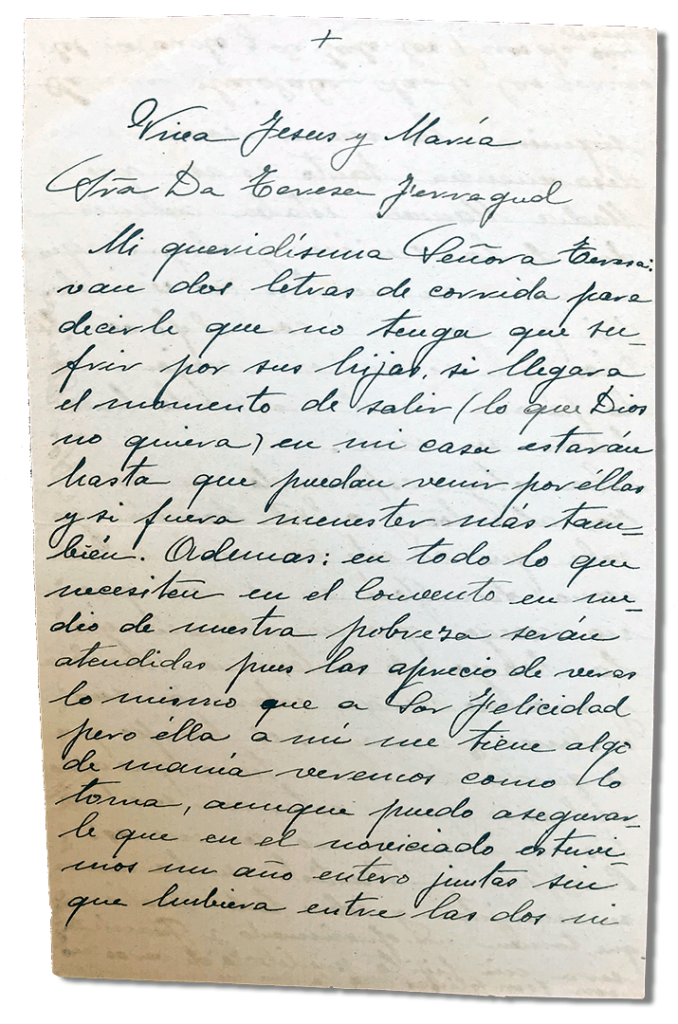 +
Viva Jesus y María
Sra Da Teresa Ferragud
Mi queridísima Señora Teresa:
van dos letras de corrida para
decirle que no tenga que su-
frir por sus hijas, si llegara
el momento de salir (lo que Dios
no quiera) en mi casa estarán
hasta que puedan venir por éllas
y si fuera menester más tam-
bién. Ademas: en todo lo que
necesiten en el Convento en me-
dio de nuestra pobreza serán
atendidas pues las aprecio de veras
lo mismo que a Sor Felicidad
pero élla a mí me tiene algo
de manía veremos como lo
toma, aunque puedo asegurar-
le que en el noviciado estuvi-
mos un año entero juntas sin
que hubiera entre las dos ni